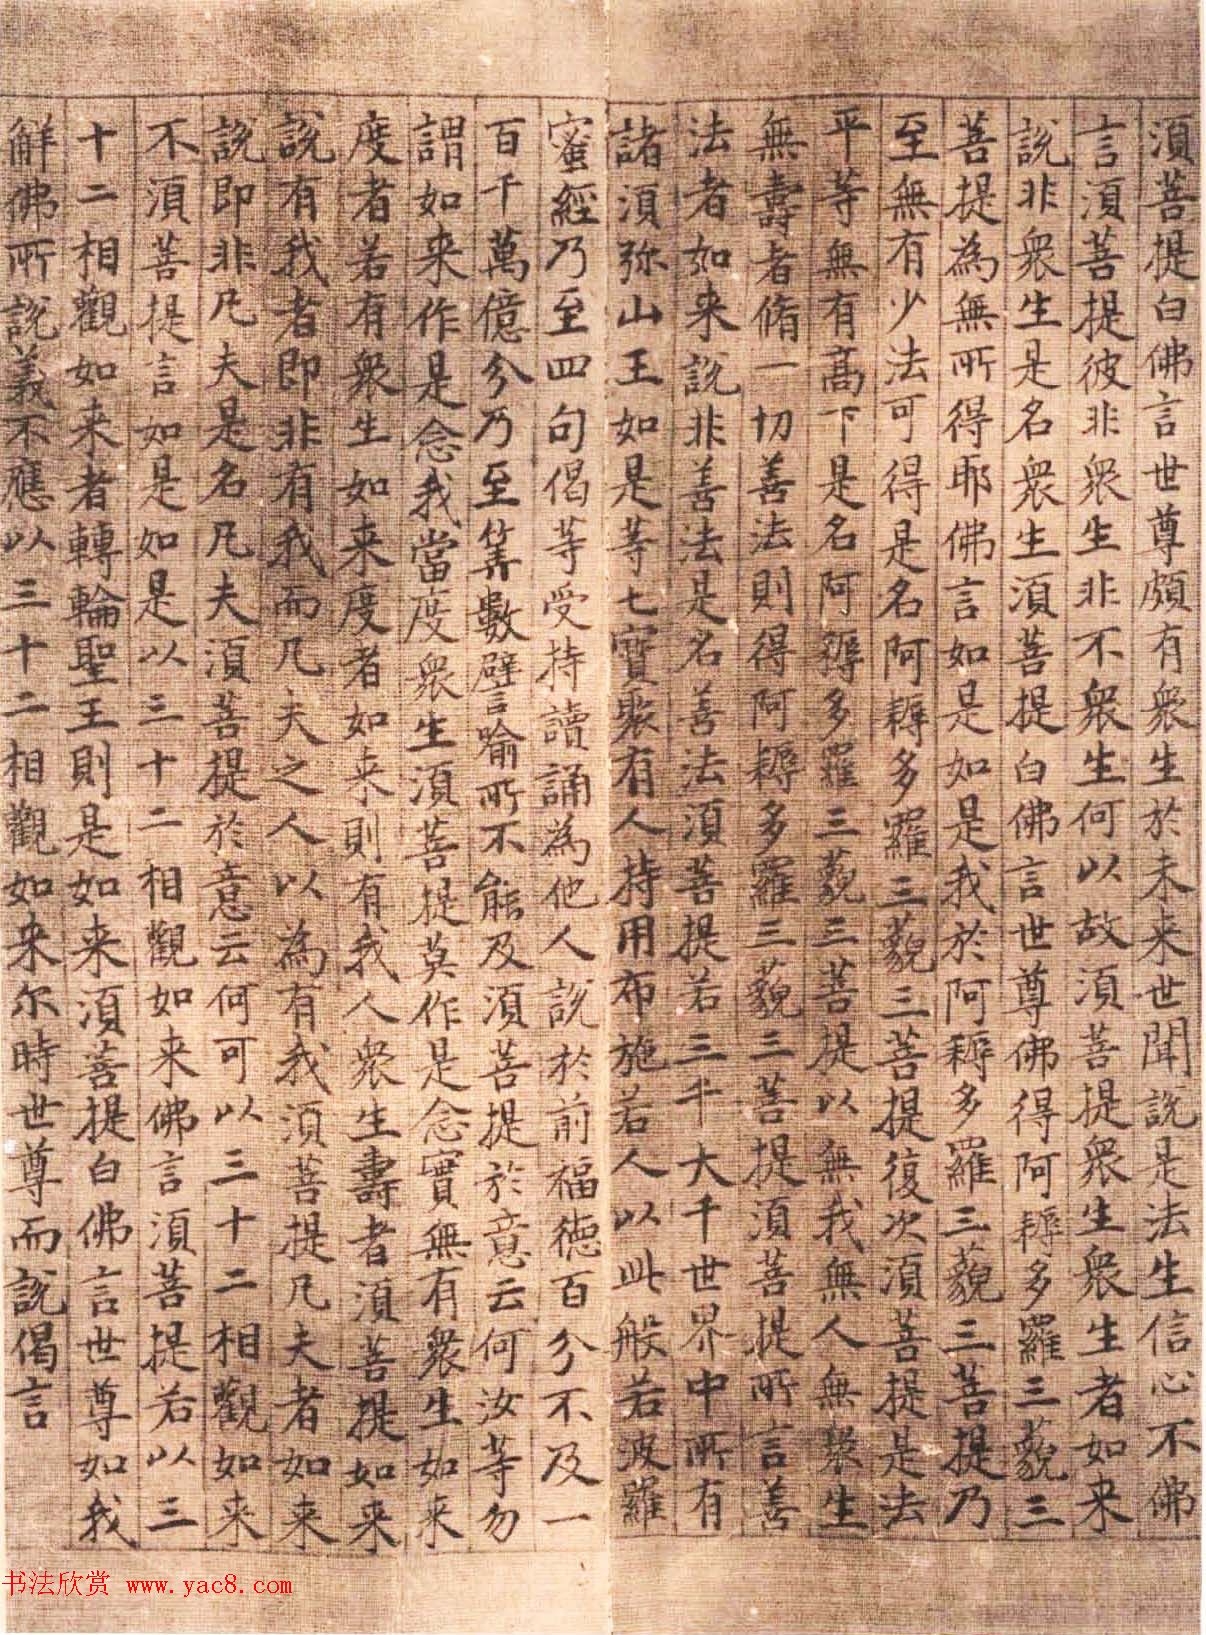 須菩提白佛言世尊頗有衆生於未来世聞說是法生信心不佛
言須菩提彼非衆生非不衆生何以故須菩提衆生衆生者如来
說非衆生是名衆生須菩提白佛言世尊佛得阿耨多羅三藐三
菩提為無所得耶佛言如是如是我於阿耨多羅三藐三菩提乃
至無有少法可得是名阿耨多羅三藐三菩提復次須菩提是法
平等無有高下是名阿耨多羅三藐三菩提以無我無人無衆生
無壽者脩一切善法則得阿耨多羅三藐三菩提須菩提所言善
法者如来說非善法是名善法須菩提若三千大千世界中所有
諸須弥山王如是等七寳聚有人持用布施若人以此般若波羅
蜜經乃至四句偈等受持讀誦為他人說於前福德百分不及一
百千萬億分乃至筭數譬喻所不能及須菩提於意云何汝等勿
謂如来作是念我當度衆生須菩提莫作是念實無有衆生如来
度者若有衆生如来度者如来則有我人衆生壽者須菩提如来
說有我者即非有我而凡夫之人以為有我須菩提凡夫者如来
說即非凡夫是名凡夫須菩提於意云何可以三十二相觀如来
不須菩提言如是如是以三十二相觀如来佛言須菩提若以三
十二相觀如来者轉輪聖王則是如来須菩提白佛言世尊如我
解佛所說義不應以三十二相觀如来尔時世尊而說偈言
书法欣赏 www.yac8.com